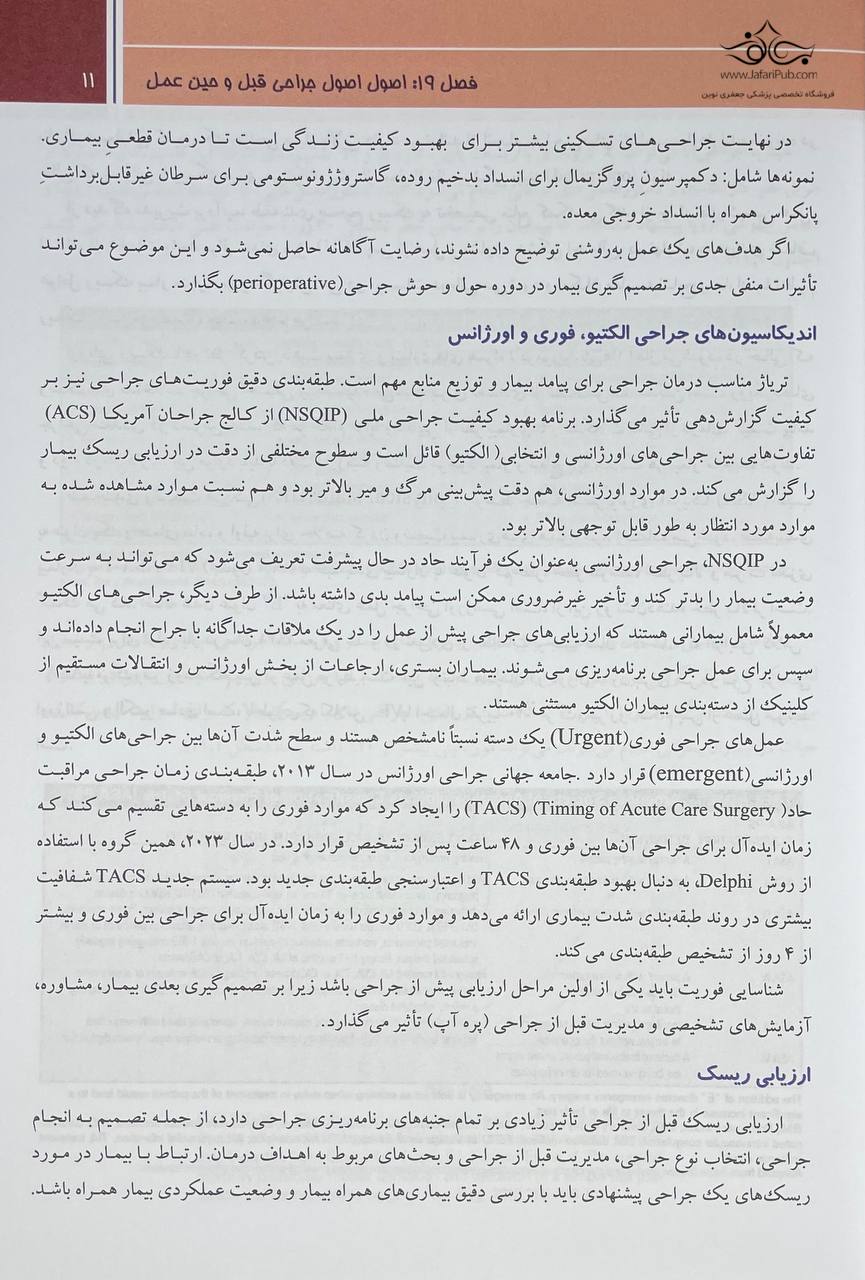 www.JafariPub.com
فروشگاه تخصصی پزشکی جعفری نوین
فصل ۱۹: اصول اصول جراحی قبل و حین عمل
۱۱
در نهایت جراحی‌های تسکینی بیشتر برای بهبود کیفیت زندگی است تا درمان قطعیِ بیماری.
نمونه‌ها شامل: دکمپرسیونِ پروگزیمال برای انسداد بدخیم روده، گاستروژژونوستومی برای سرطان غیرقابل‌برداشتِ
پانکراس همراه با انسداد خروجی معده.
اگر هدف‌های یک عمل به‌روشنی توضیح داده نشوند، رضایت آگاهانه حاصل نمی‌شود و این موضوع می‌تواند
تأثیرات منفی جدی بر تصمیم‌گیری بیمار در دوره حول و حوش جراحی(perioperative) بگذارد.
اندیکاسیون‌های جراحی الکتیو، فوری و اورژانس
تریاژ مناسب درمان جراحی برای پیامد بیمار و توزیع منابع مهم است. طبقه‌بندی دقیق فوریت‌های جراحی نیز بر
کیفیت گزارش‌دهی تأثیر می‌گذارد. برنامه بهبود کیفیت جراحی ملی (NSQIP) از کالج جراحان آمریکا (ACS)
تفاوت‌هایی بین جراحی‌های اورژانسی و انتخابی( الکتیو) قائل است و سطوح مختلفی از دقت در ارزیابی ریسک بیمار
را گزارش می‌کند. در موارد اورژانسی، هم دقت پیش‌بینی مرگ و میر بالاتر بود و هم نسبت موارد مشاهده شده به
موارد مورد انتظار به طور قابل توجهی بالاتر بود.
در NSQIP، جراحی اورژانسی به‌عنوان یک فرآیند حاد در حال پیشرفت تعریف می‌شود که می‌تواند به سرعت
وضعیت بیمار را بدتر کند و تأخیر غیرضروری ممکن است پیامد بدی داشته باشد. از طرف دیگر، جراحی‌های الکتیو
معمولاً شامل بیمارانی هستند که ارزیابی‌های جراحی پیش از عمل را در یک ملاقات جداگانه با جراح انجام داده‌اند و
سپس برای عمل جراحی برنامه‌ریزی می‌شوند. بیماران بستری، ارجاعات از بخش اورژانس و انتقالات مستقیم از
کلینیک از دسته‌بندی بیماران الکتیو مستثنی هستند.
عمل‌های جراحی فوری(Urgent) یک دسته نسبتاً نامشخص هستند و سطح شدت آن‌ها بین جراحی‌های الکتیو و
اورژانسی(emergent) قرار دارد .جامعه جهانی جراحی اورژانس در سال ۲۰۱۳، طبقه‌بندی زمان جراحی مراقبت
حاد( Timing of Acute Care Surgery) (TACS) را ایجاد کرد که موارد فوری را به دسته‌هایی تقسیم می‌کند که
زمان ایده‌آل برای جراحی آن‌ها بین فوری و ۴۸ ساعت پس از تشخیص قرار دارد. در سال ۲۰۲۳، همین گروه با استفاده
از روش Delphi، به دنبال بهبود طبقه‌بندی TACS و اعتبارسنجی طبقه‌بندی جدید بود. سیستم جدید TACS شفافیت
بیشتری در روند طبقه‌بندی شدت بیماری ارائه می‌دهد و موارد فوری را به زمان ایده‌آل برای جراحی بین فوری و بیشتر
از ۴ روز از تشخیص طبقه‌بندی می‌کند.
شناسایی فوریت باید یکی از اولین مراحل ارزیابی پیش از جراحی باشد زیرا بر تصمیم‌گیری بعدی بیمار، مشاوره،
آزمایش‌های تشخیصی و مدیریت قبل از جراحی (پره آپ) تأثیر می‌گذارد.
ارزیابی ریسک
ارزیابی ریسک قبل از جراحی تأثیر زیادی بر تمام جنبه‌های برنامه‌ریزی جراحی دارد، از جمله تصمیم به انجام
جراحی، انتخاب نوع جراحی، مدیریت قبل از جراحی و بحث‌های مربوط به اهداف درمان. ارتباط با بیمار در مورد
ریسک‌های یک جراحی پیشنهادی باید با بررسی دقیق بیماری‌های همراه بیمار و وضعیت عملکردی بیمار همراه باشد.